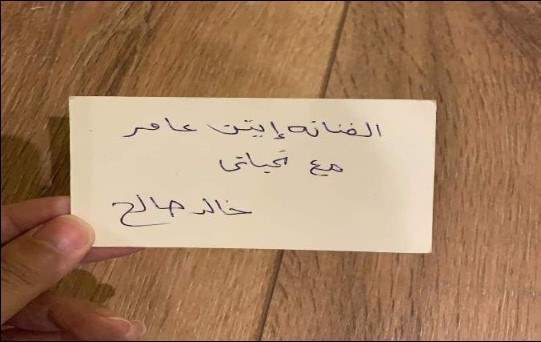 الفنانه إيتن عامر
مع تحياتى
خالد صالح